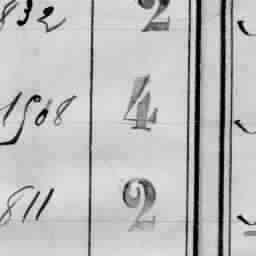 832 2
1508 4
811 2